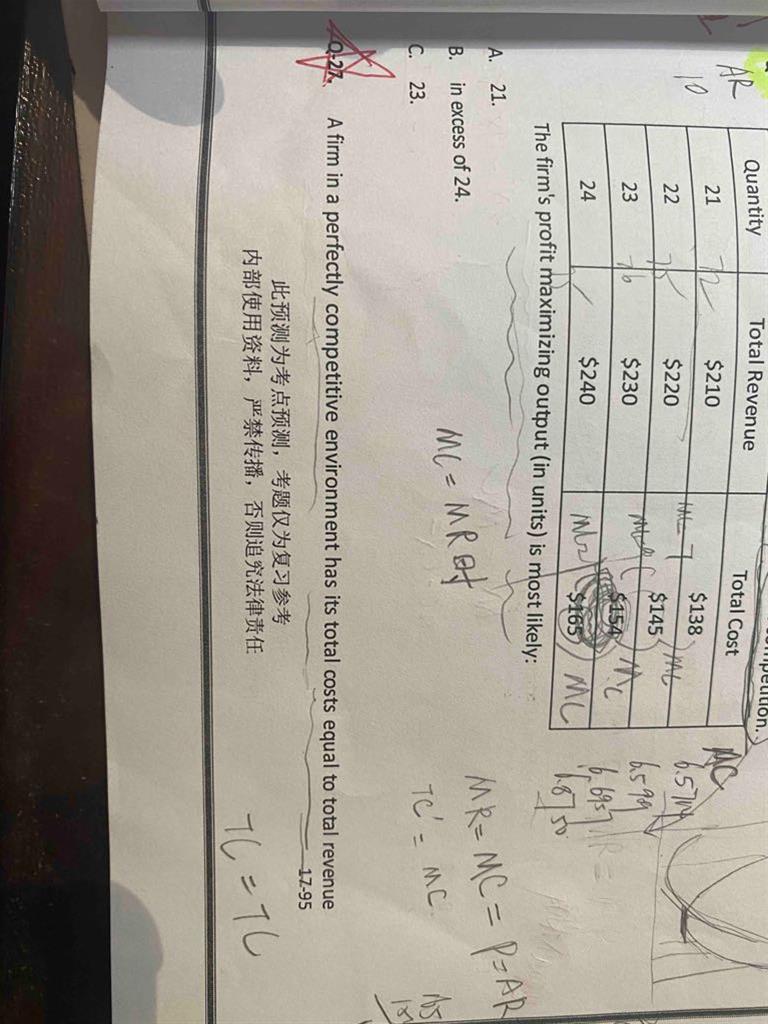 AR
10
Quantity Total Revenue Total Cost MC
21 72 $210 $138 6.5714
22 75 $220 MC 7 $145 MC 6.5909
23 76 $230 $154 MC 6.6957
24 $240 $165 MC 6.8750
The firm's profit maximizing output (in units) is most likely:
A. 21.
B. in excess of 24.
C. 23.
MC = MR
MR = MC = P = AR
TC' = MC
Q-27. A firm in a perfectly competitive environment has its total costs equal to total revenue
17-95
此预测为考点预测，考题仅为复习参考
内部使用资料，严禁传播，否则追究法律责任
TC = TC